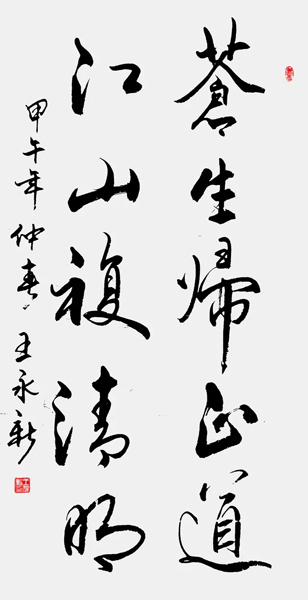 蒼生歸正道
江山複清明
甲午年仲春王永新